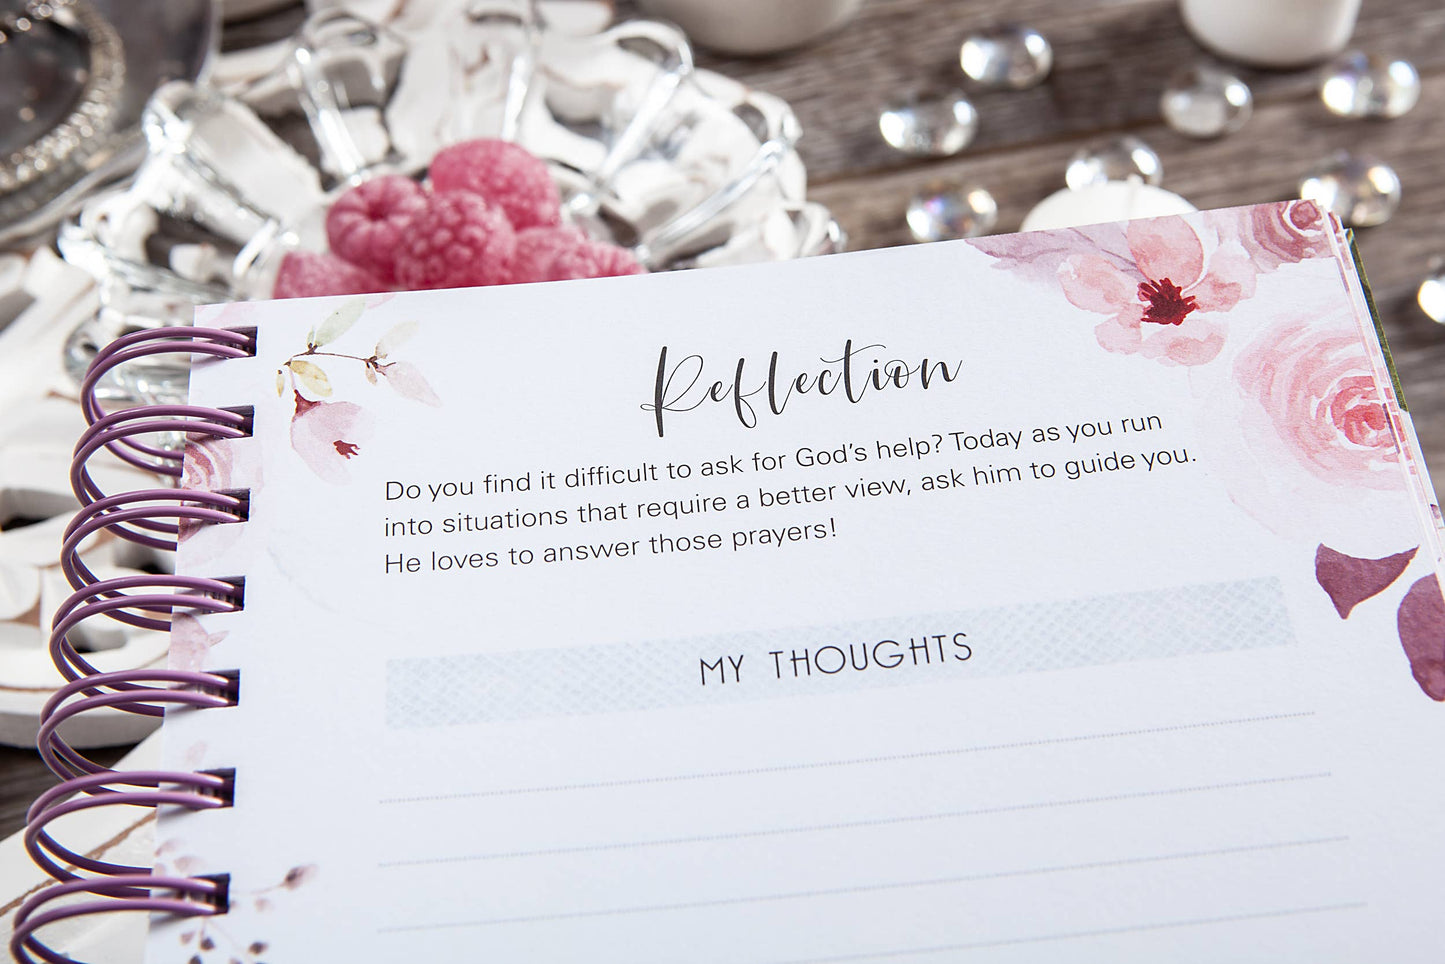 Reflection
Do you find it difficult to ask for God's help? Today as you run
into situations that require a better view, ask him to guide you.
He loves to answer those prayers!
MY THOUGHTS